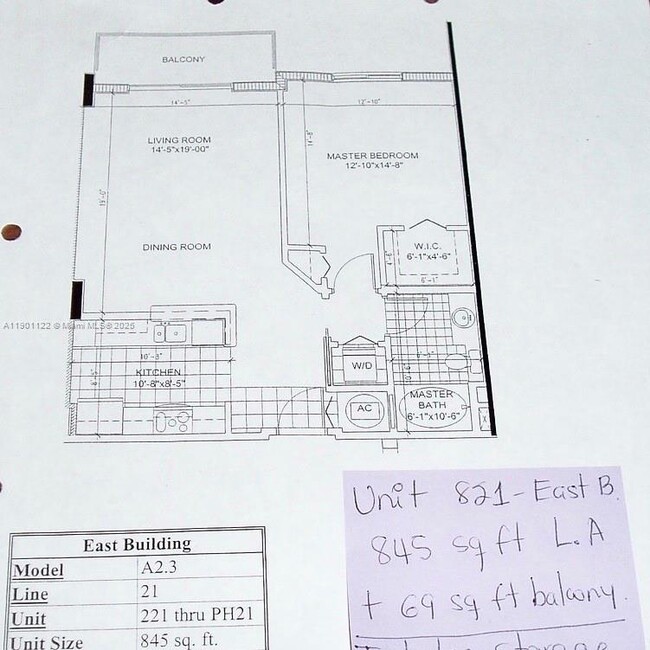 BALCONY
14'-5"
12'-10"
LIVING ROOM
14'-5"x19'-00"
14'-8"
MASTER BEDROOM
12'-10"x14'-8"
19'-0"
DINING ROOM
W.I.C.
6'-1"x4'-6"
4'-6"
6'-1"
A11901122 © Miami MLS® 2025
10'-8"
KITCHEN
10'-8"x8'-5"
8'-5"
W/D
AC
MASTER
BATH
6'-1"x10'-6"
Unit 821-East B.
845 sq ft L.A
+ 69 sq ft balcony.
storage
East Building
Model A2.3
Line 21
Unit 221 thru PH21
Unit Size 845 sq. ft.